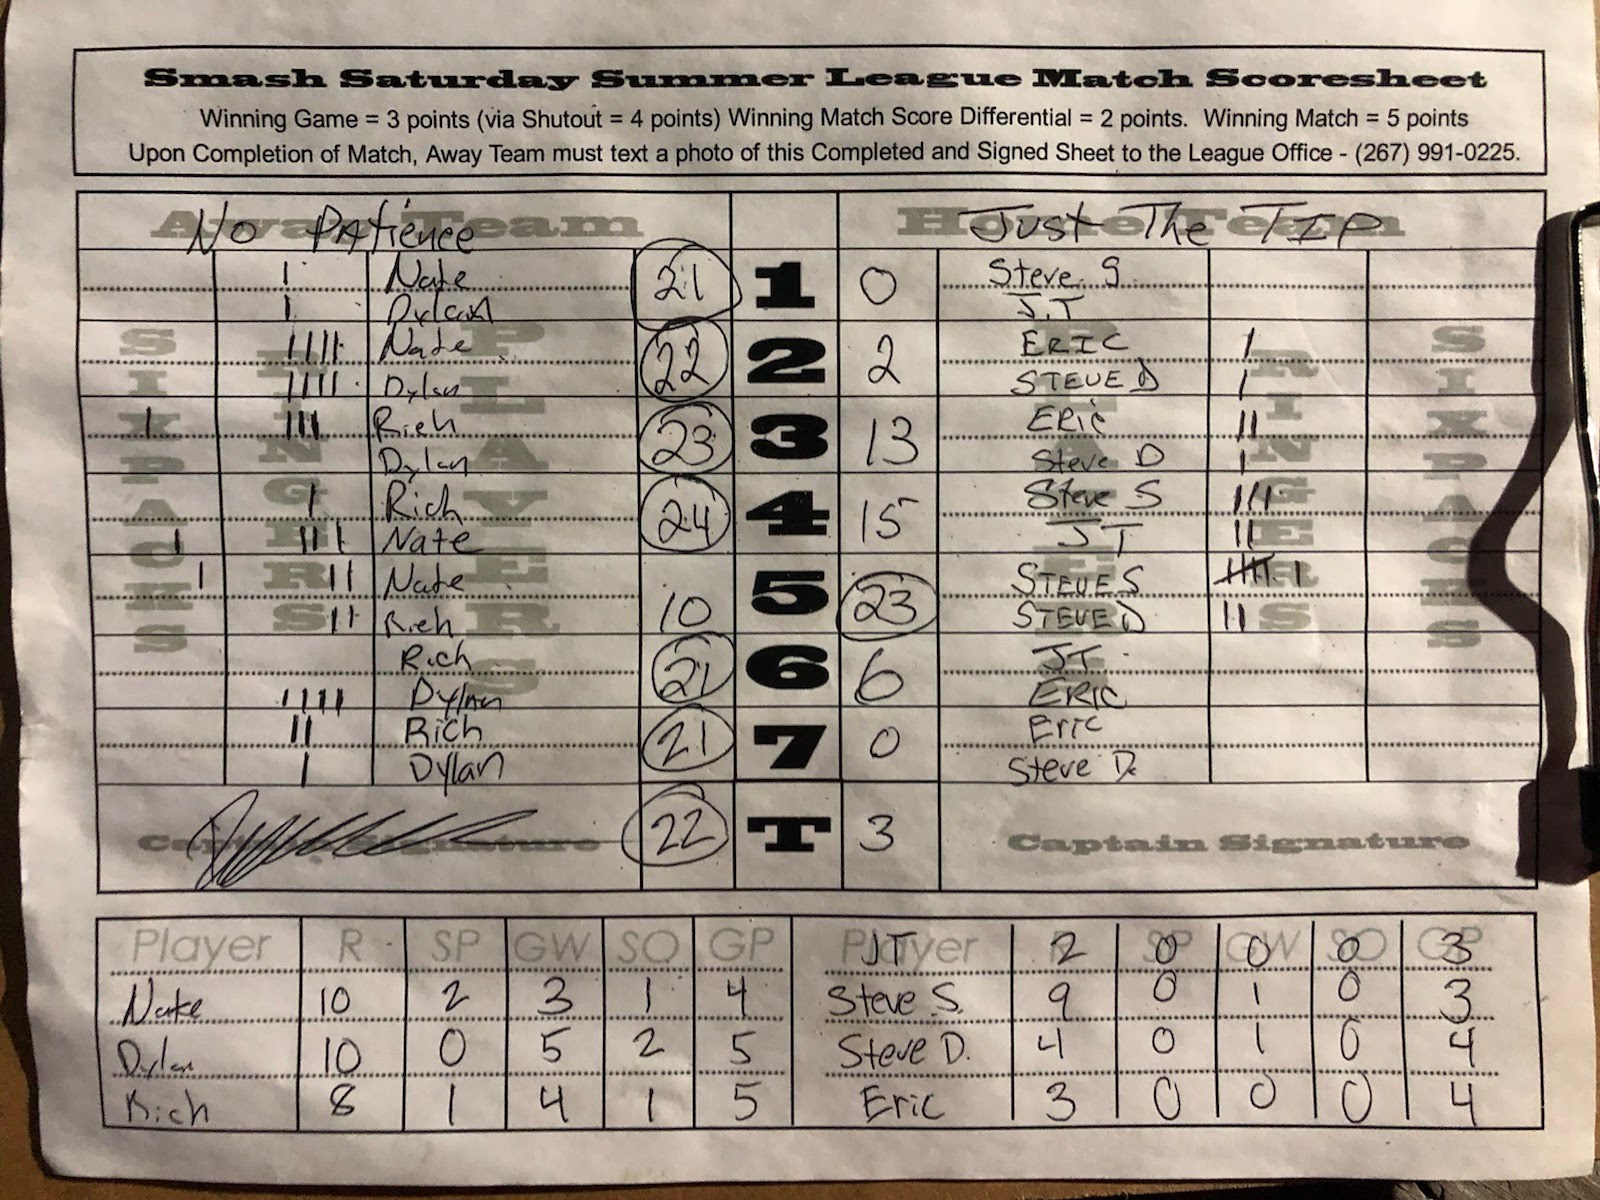 Smash Saturday Summer League Match Scoresheet
Winning Game = 3 points (via Shutout = 4 points) Winning Match Score Differential = 2 points. Winning Match = 5 points
Upon Completion of Match, Away Team must text a photo of this Completed and Signed Sheet to the League Office - (267) 991-0225.
Away Team Home Team
No Patience Just The TIP
SIXPACKS RINGERS PLAYERS PLAYERS RINGERS SIXPACKS
I Nate 21 1 0 Steve S
I Dylan J.T
IIII Nate 22 2 2 ERIC I
IIII Dylan STEVE D I
I III Rich 23 3 13 ERic II
Dylan Steve D I
I Rich 24 4 15 Steve S III
I III Nate JT II
I II Nate 10 5 23 STEVE S IIIII I
II Rich STEVE D II
Rich 21 6 6 JT
IIII Dylan ERIC
II Rich 21 7 0 Eric
I Dylan Steve D.
Captain Signature 22 T 3 Captain Signature
Player R SP GW SO GP Player R SP GW SO GP
JT 2 0 0 0 3
Nate 10 2 3 1 4 Steve S. 9 0 1 0 3
Dylan 10 0 5 2 5 Steve D. 4 0 1 0 4
Rich 8 1 4 1 5 Eric 3 0 0 0 4